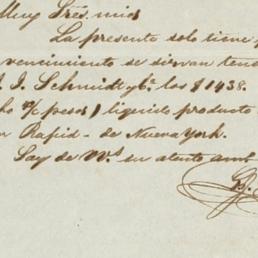 Muy Sres. mios
La presente solo tiene
vencimiento se sirvan
J. Schmidt y Ca. los $1438.
pesos) liquido producto
Rapid - de Nueva York.
Soy de Vs. su atento